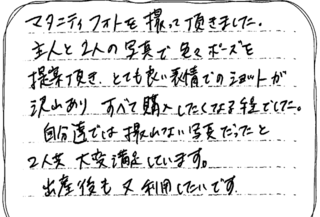 マタニティフォトを撮って頂きました。
主人と2人の写真で色々ポーズを
提案頂き、とても良い表情でのショットが
沢山あり すべて購入したくなる程でした。
自分達では撮れない写真だったと
2人共 大変満足しています。
出産後も又利用したいです